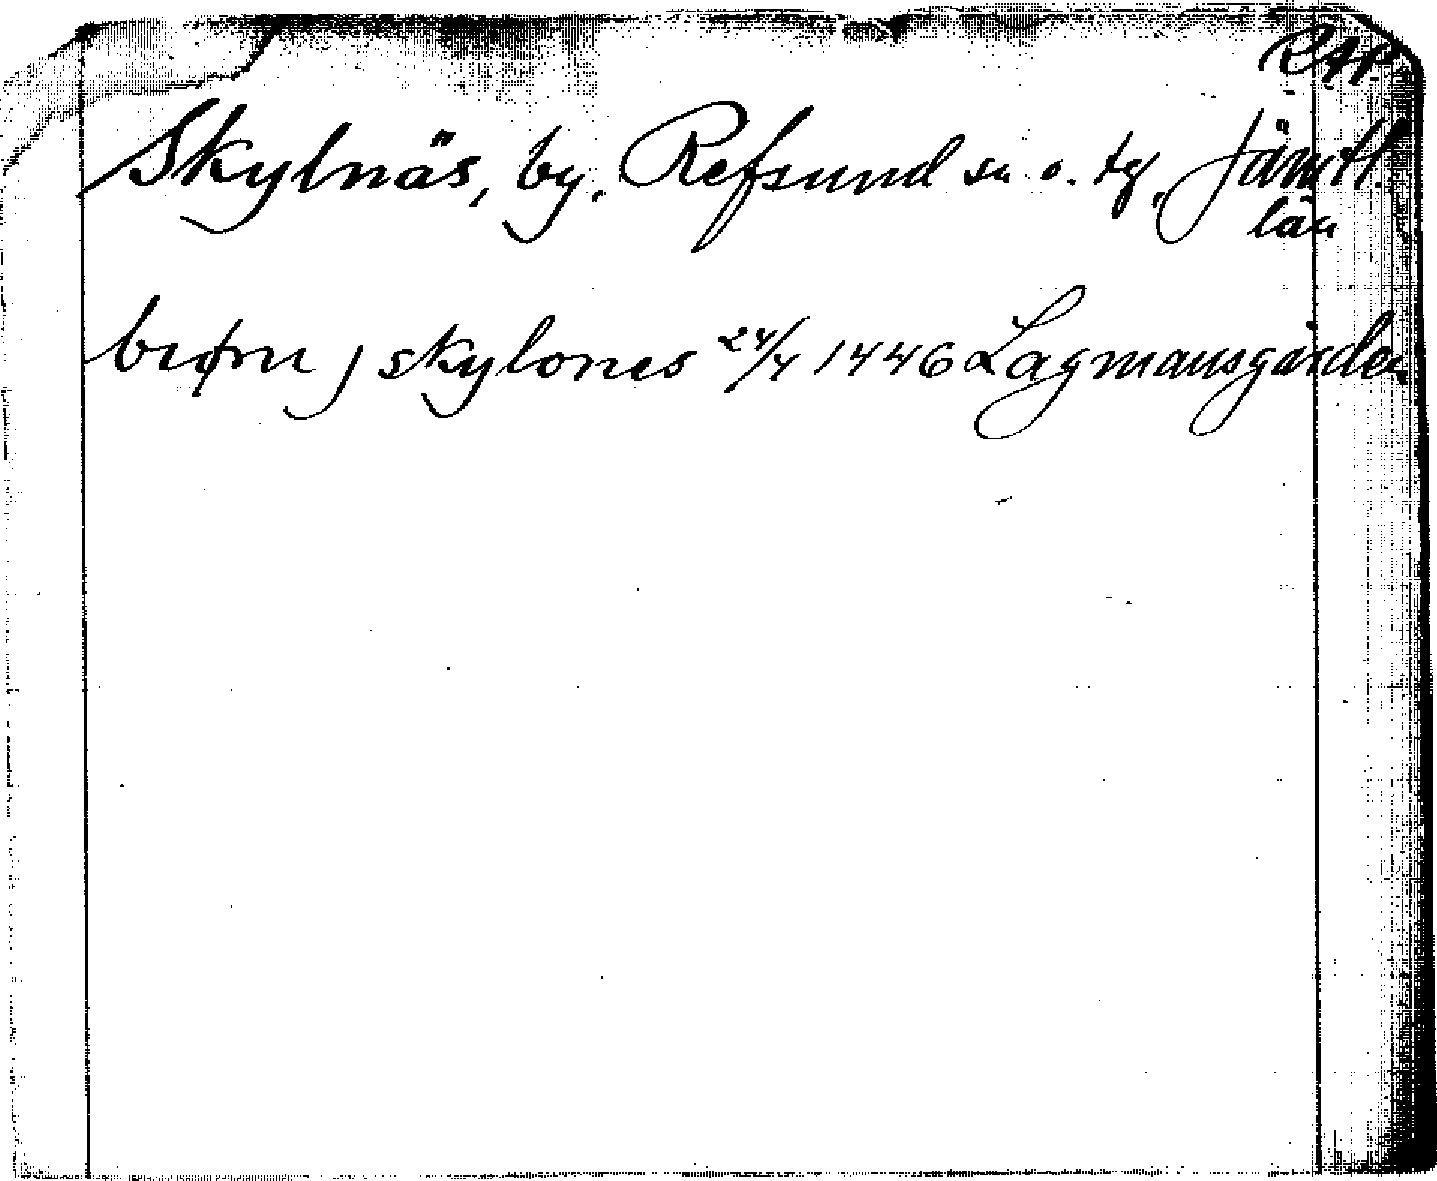 RAP.
Skylnäs, by. Refsund sn o. tg, Jämtl.
län
biørn j skylones 24/4 1446 Lagmansgården